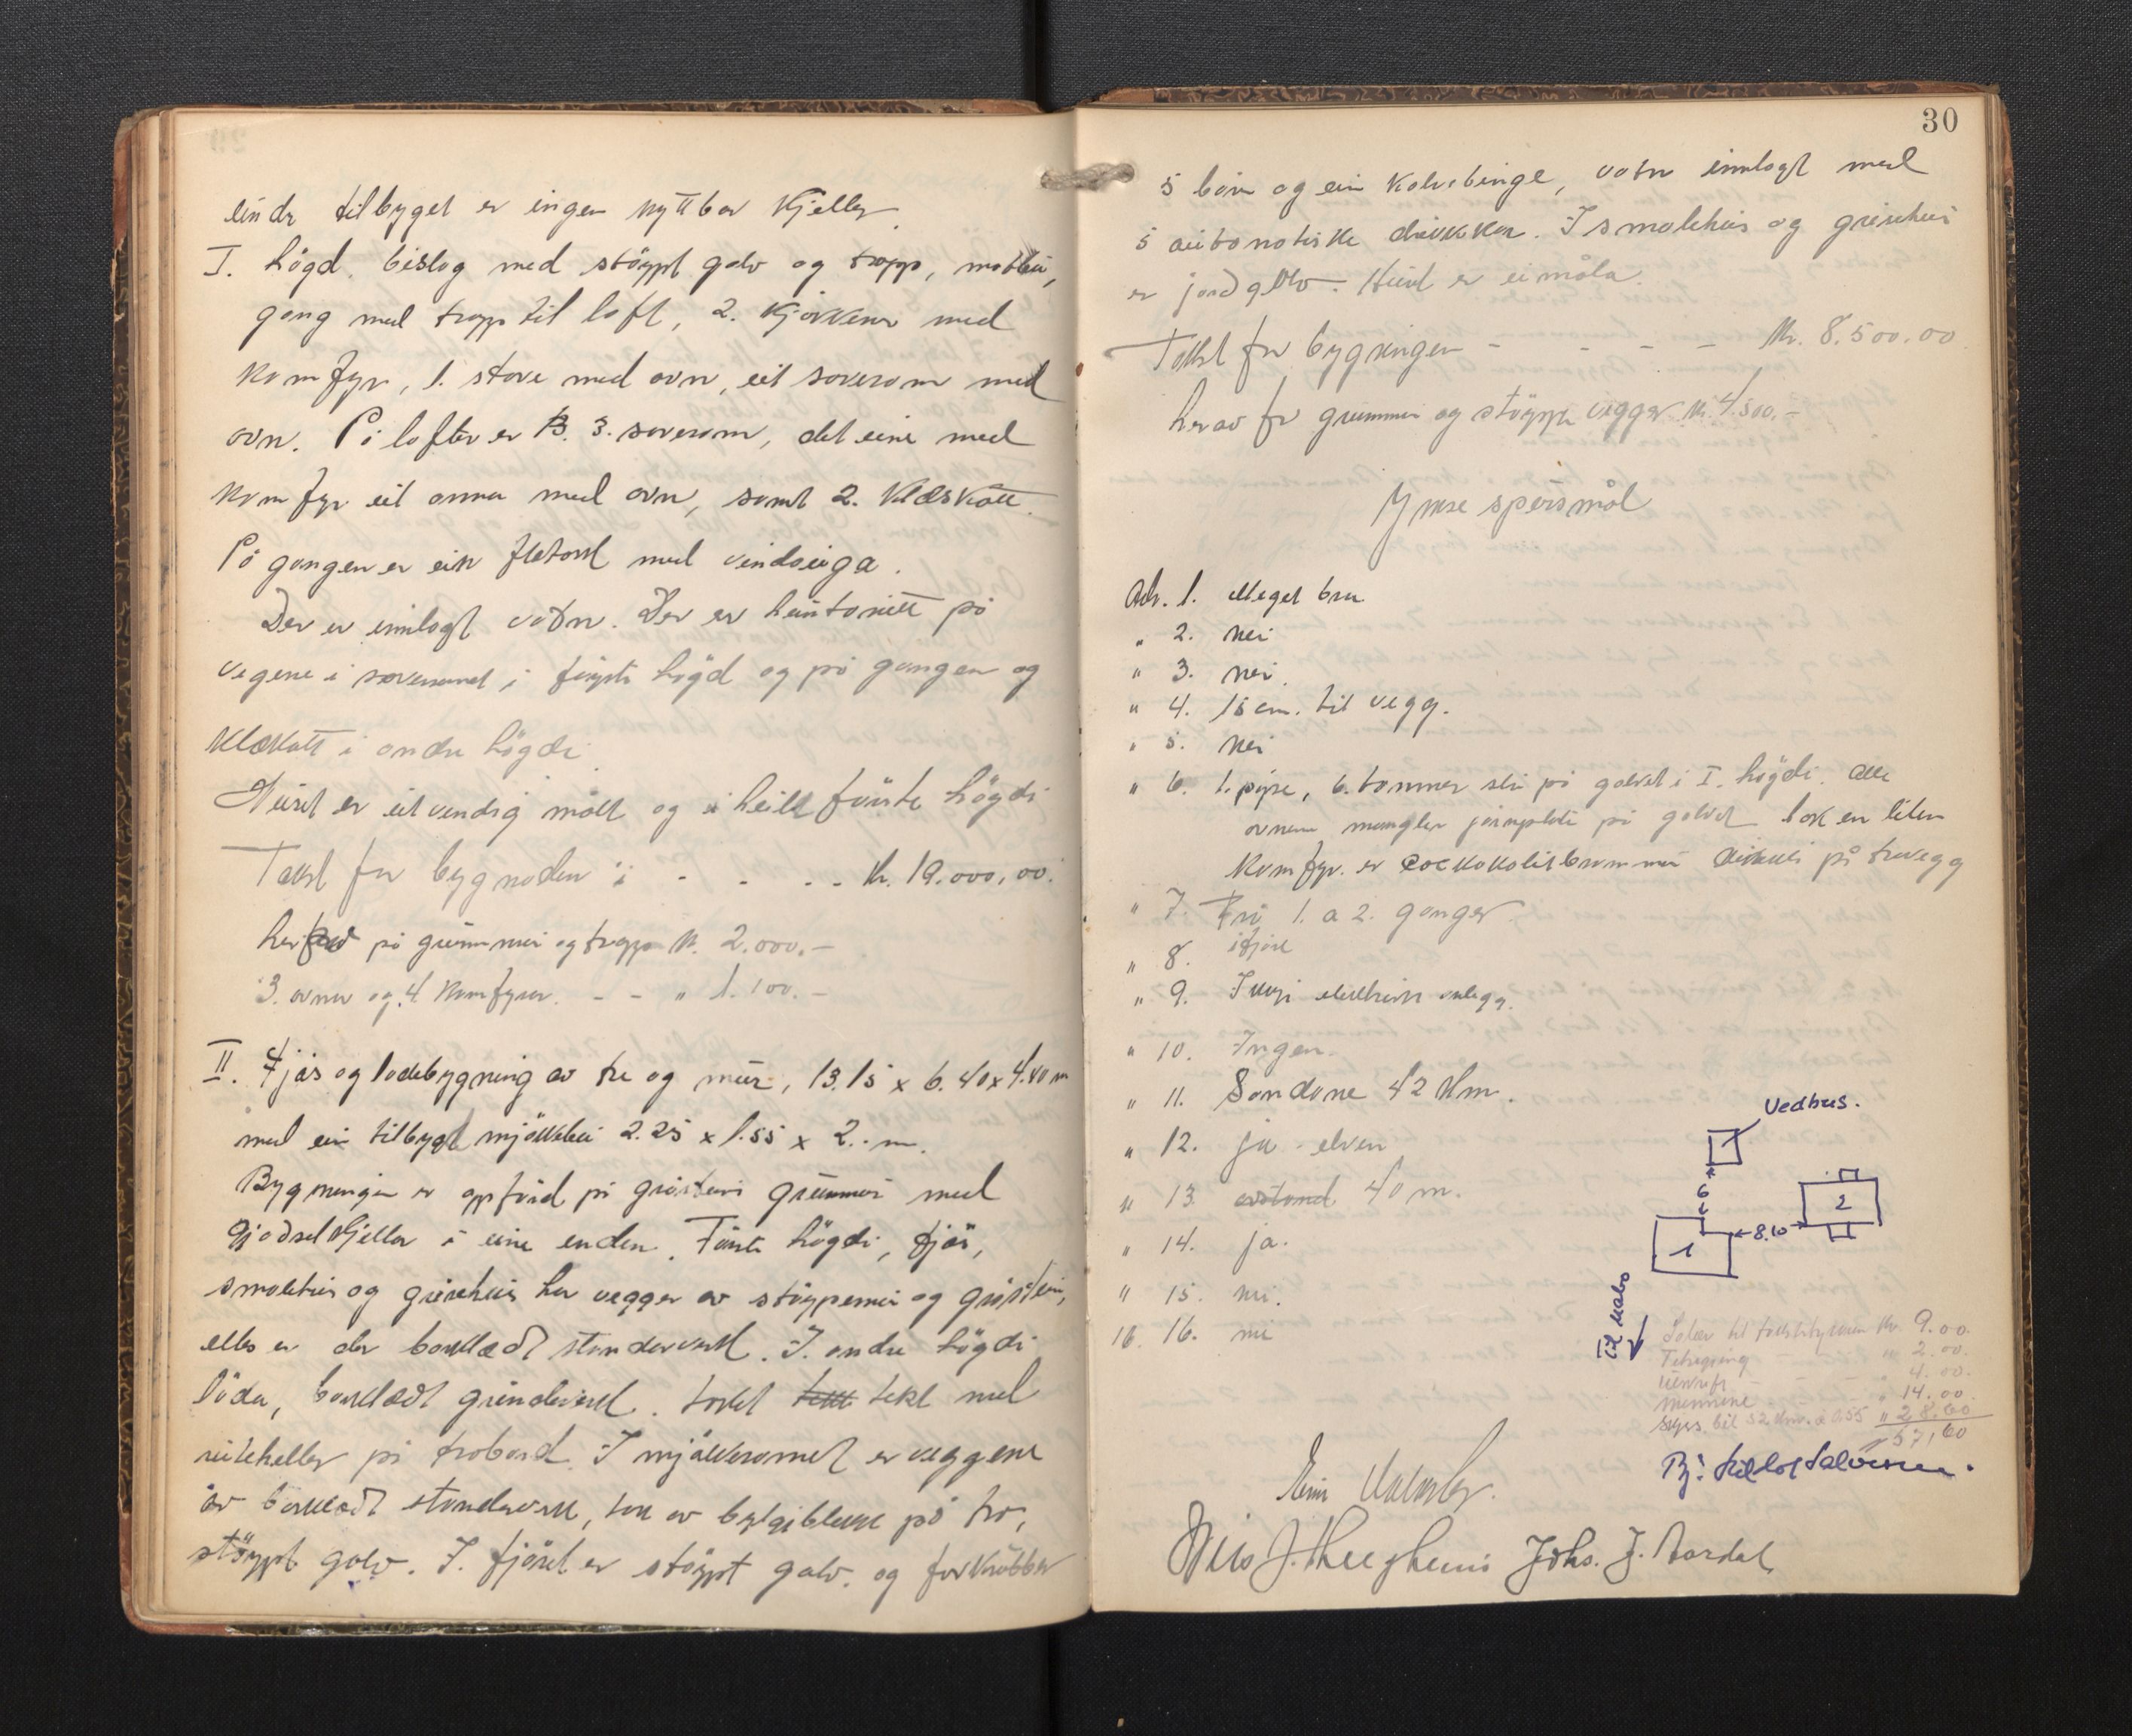 under tilbyget er ingen nyttbar Kjeller
I. högd. bislag med stöypt golv og trapp, matbu,
gang med trapp til loft, 2. Kjökkener med
komfyr, 1. stove med ovn, eit soverom med
ovn. På loftet er 3. soverom, det eine med
komfyr eit anna med ovn, samt 2. Klæskott.
På gangen er ein flatark med vindauga.
Der er innlagt vatn. Der er huntonitt på
vegene i soverommet i fyrste högd og på gangen og
Klæskott i andre högdi.
Huset er utvendig målt og i heile förste högdi
Takst for bygnaden i - - - - Kr. 19.000,00.
herav på grunnmur og trapp Kr. 2.000.-
3. ovner og 4. Komfyrer. - - " 1.100.-
II. Fjös og lödebygning av tre og mur, 13.15 x 6.40 x 4.40 m
med ein tilbygd mjölkebu 2.25 x 1.55 x 2.. m.
Bygningen er oppförd på gråsteins grunnmur med
gjödselkjeller i eine enden. Förste högdi, fjös,
smalehus og grisehus har vegger av stöypemur og gråstein,
elles er der bordklædt stenderverk. I. andre högdi
löda, bordklædt grindverk. taket tekt med
skiteheller på trobord. I mjölkeromet er veggene
av bordklædt stenderverk, tak av bylgjeblekk på tro,
stöypt golv. I. fjöset er stöypt golv. og forkrubber
30
5 båsar og ein Kalvebinge, vatn innlagt med
5 automatiske drikkekar. I smalehus og grisehus
er jordgolv. Huset er ei måla.
Takst for bygningen - - - - Kr. 8.500.00
herav for grunnmur og stöypte vegger Kr. 4.500,-
Ymse spörsmål
Ad. 1. Meget bra
" 2. nei
" 3. nei.
" 4. 15 cm. til vegg.
" 5. nei
" 6. 1. pipe, 6. tommer stein på golvet i I. högdi. Alle
ovnene mangler jarnplate på golvet 1 ok en liten
Komfyr. er på trevegg
" 7. Frå 1. a 2. ganger
" 8. ikkje
" 9. Ikkje elektrisk anlegg.
" 10. Ingen.
" 11. Sandane 42 Km.
" 12. ja - elven
" 13. avstand 40 m.
" 14. ja.
" 15. nei.
16. 16. nei
Vedhus.
6
2
8.10
1
Salær til takstmennen Kr. 9.00.
Teikning - - " 2.00.
Utskrift - - - " 4.00.
mennene - - " 14.00.
Skyss bil 52 km. a 0.55 " 28.60
57,60
Johs. J. Aardal